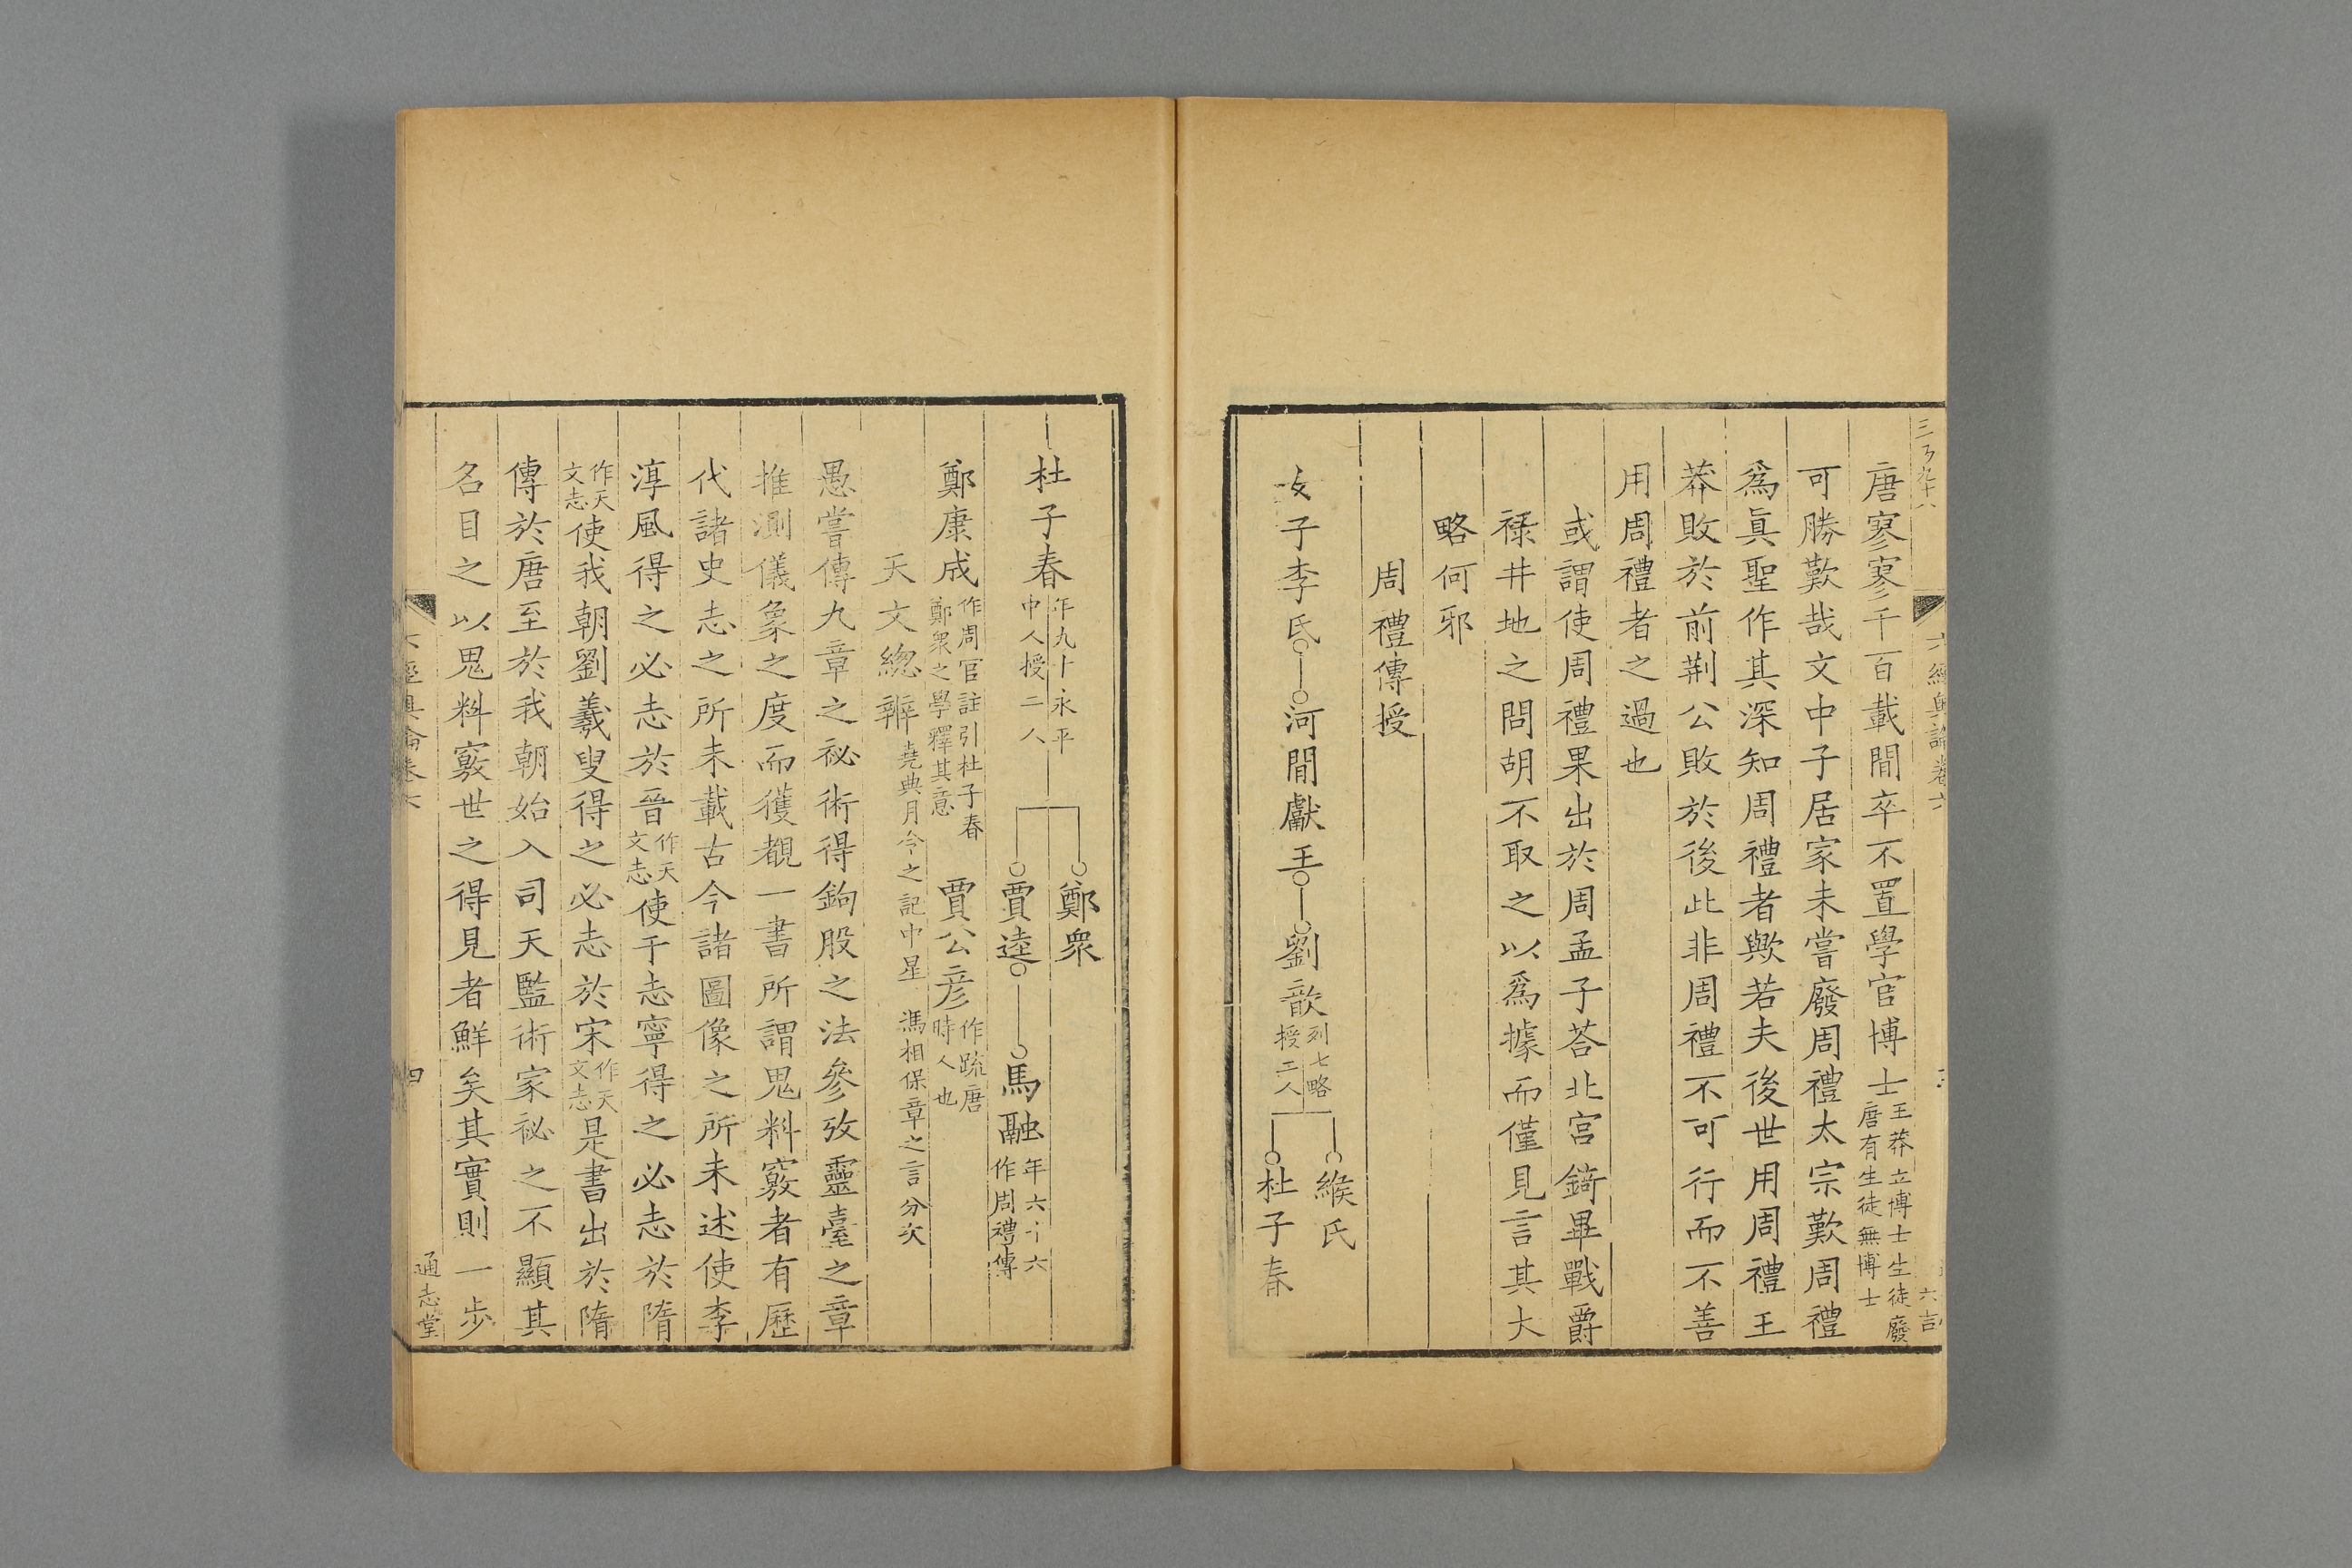 唐寥寥千百載間卒不置學官博士王莽立博士生徒廢唐有生徒無博士
可勝歎哉文中子居家未嘗廢周禮太宗歎周禮
爲眞聖作其深知周禮者歟若夫後世用周禮王
莽敗於前荆公敗於後此非周禮不可行而不善
用周禮者之過也
或謂使周禮果出於周孟子荅北宮錡畢戰爵
祿井地之問胡不取之以爲據而僅見言其大
略何邪
周禮傳授
女子李氏
河間獻王
劉歆列七略授二人
緱氏
杜子春
杜子春年九十永平中人授二人
鄭衆
賈逵
馬融年六十六作周禮傳
鄭康成作周官註引杜子春鄭衆之學釋其意
賈公彦作疏唐時人也
天文總辨堯典月令之記中星馮相保章之言分次
愚嘗傳九章之祕術得鉤股之法參攷靈臺之章
推測儀象之度而獲覩一書所謂鬼料竅者有歷
代諸史志之所未載古今諸圖像之所未述使李
淳風得之必志於晉作天文志使于志寧得之必志於隋
作天文志使我朝劉羲叟得之必志於宋作天文志是書出於隋
傳於唐至於我朝始入司天監術家祕之不顯其
名目之以鬼料竅世之得見者鮮矣其實則一步
六經奥論卷六
四
通志堂